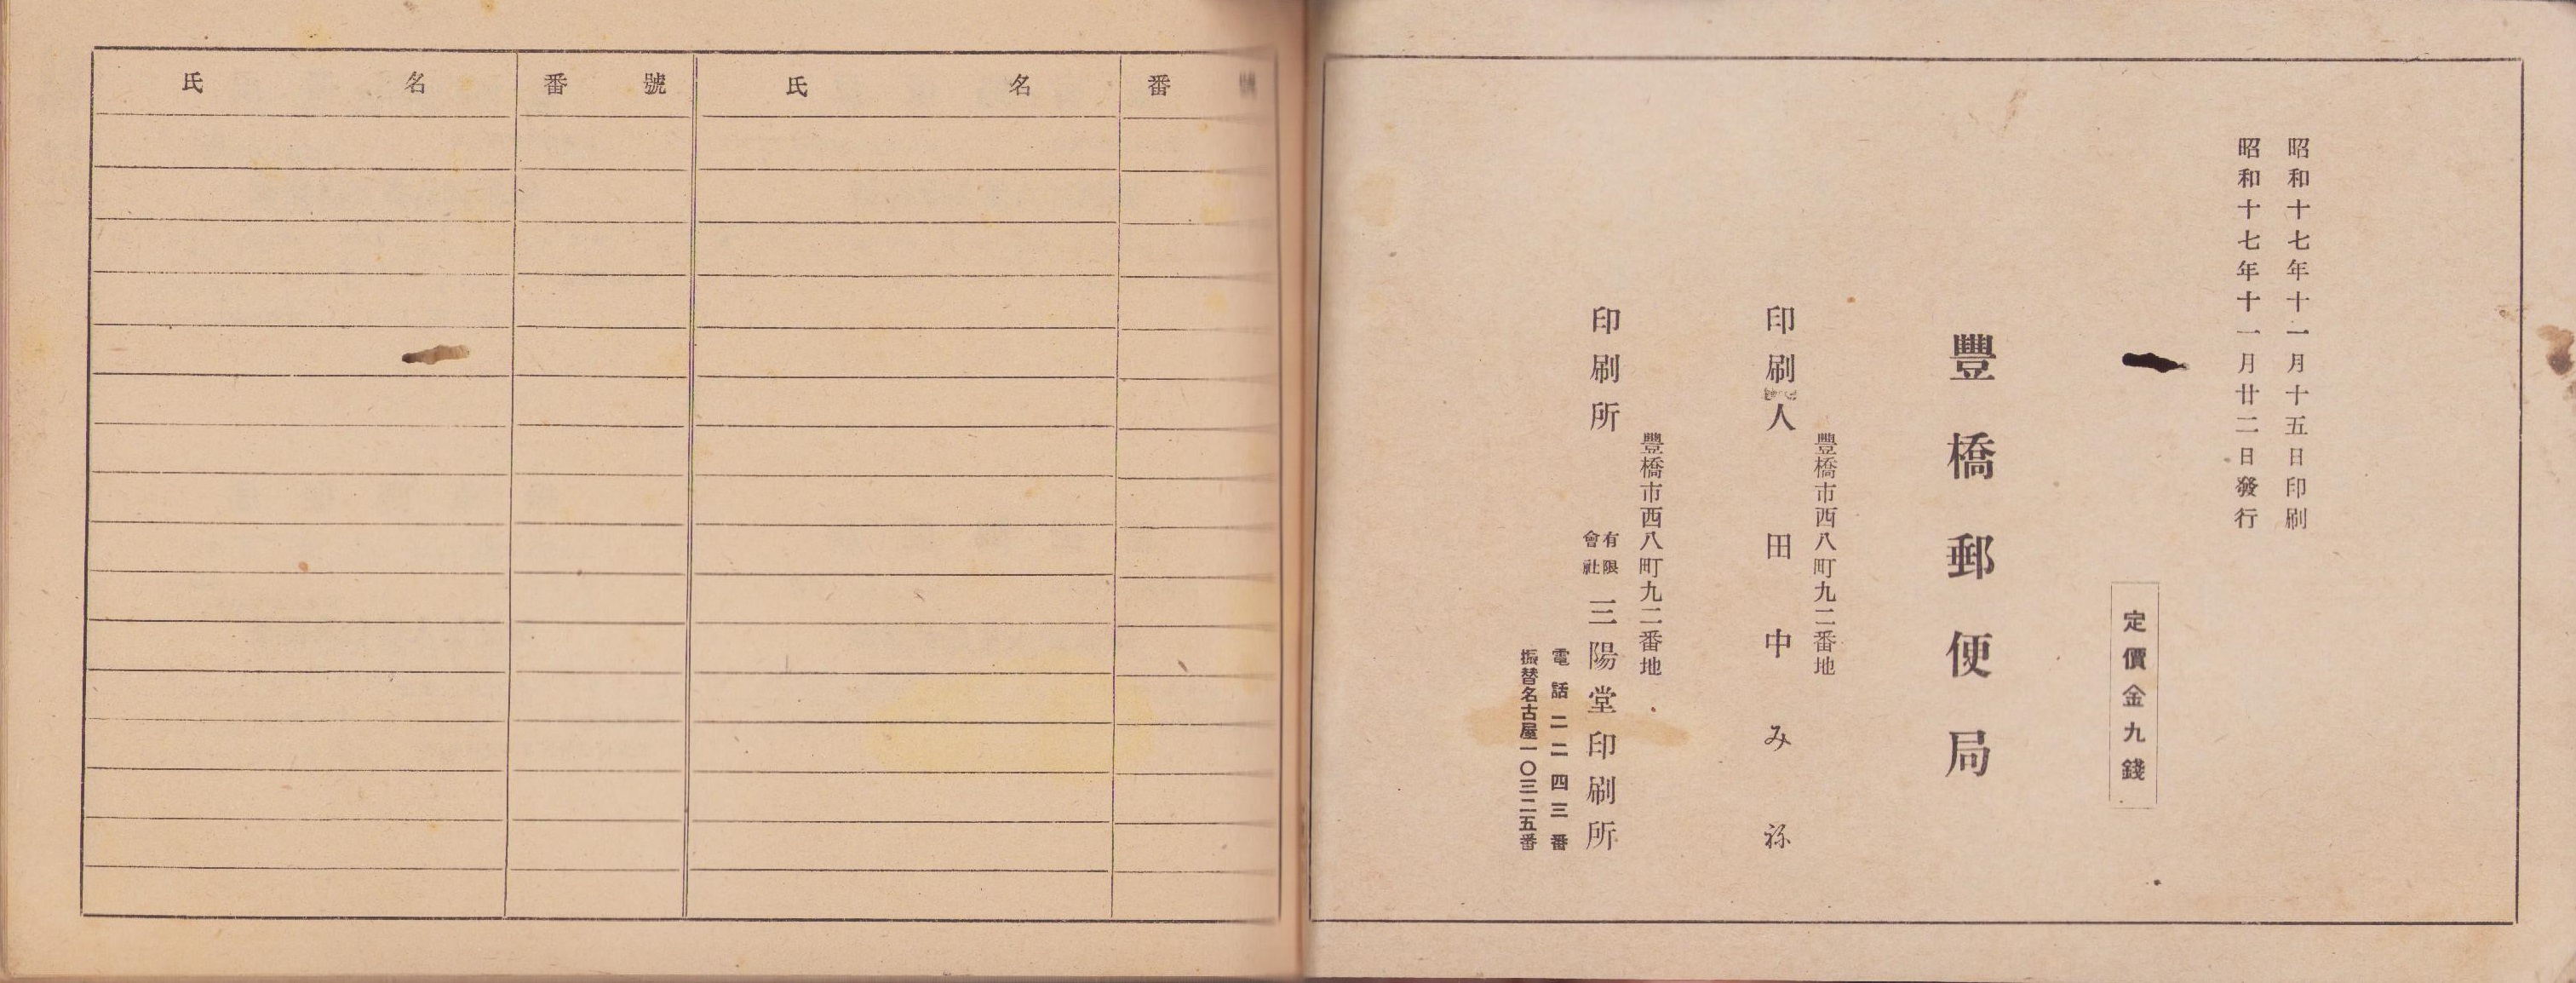 昭和十七年十一月十五日印刷
昭和十七年十一月廿二日發行
定價金九錢
豐橋郵便局
豐橋市西八町九二番地
印刷人 田中みね
豐橋市西八町九二番地
印刷所 有限會社 三陽堂印刷所
電話二二四三番
振替名古屋一〇三二五番
氏名 番號 氏名 番